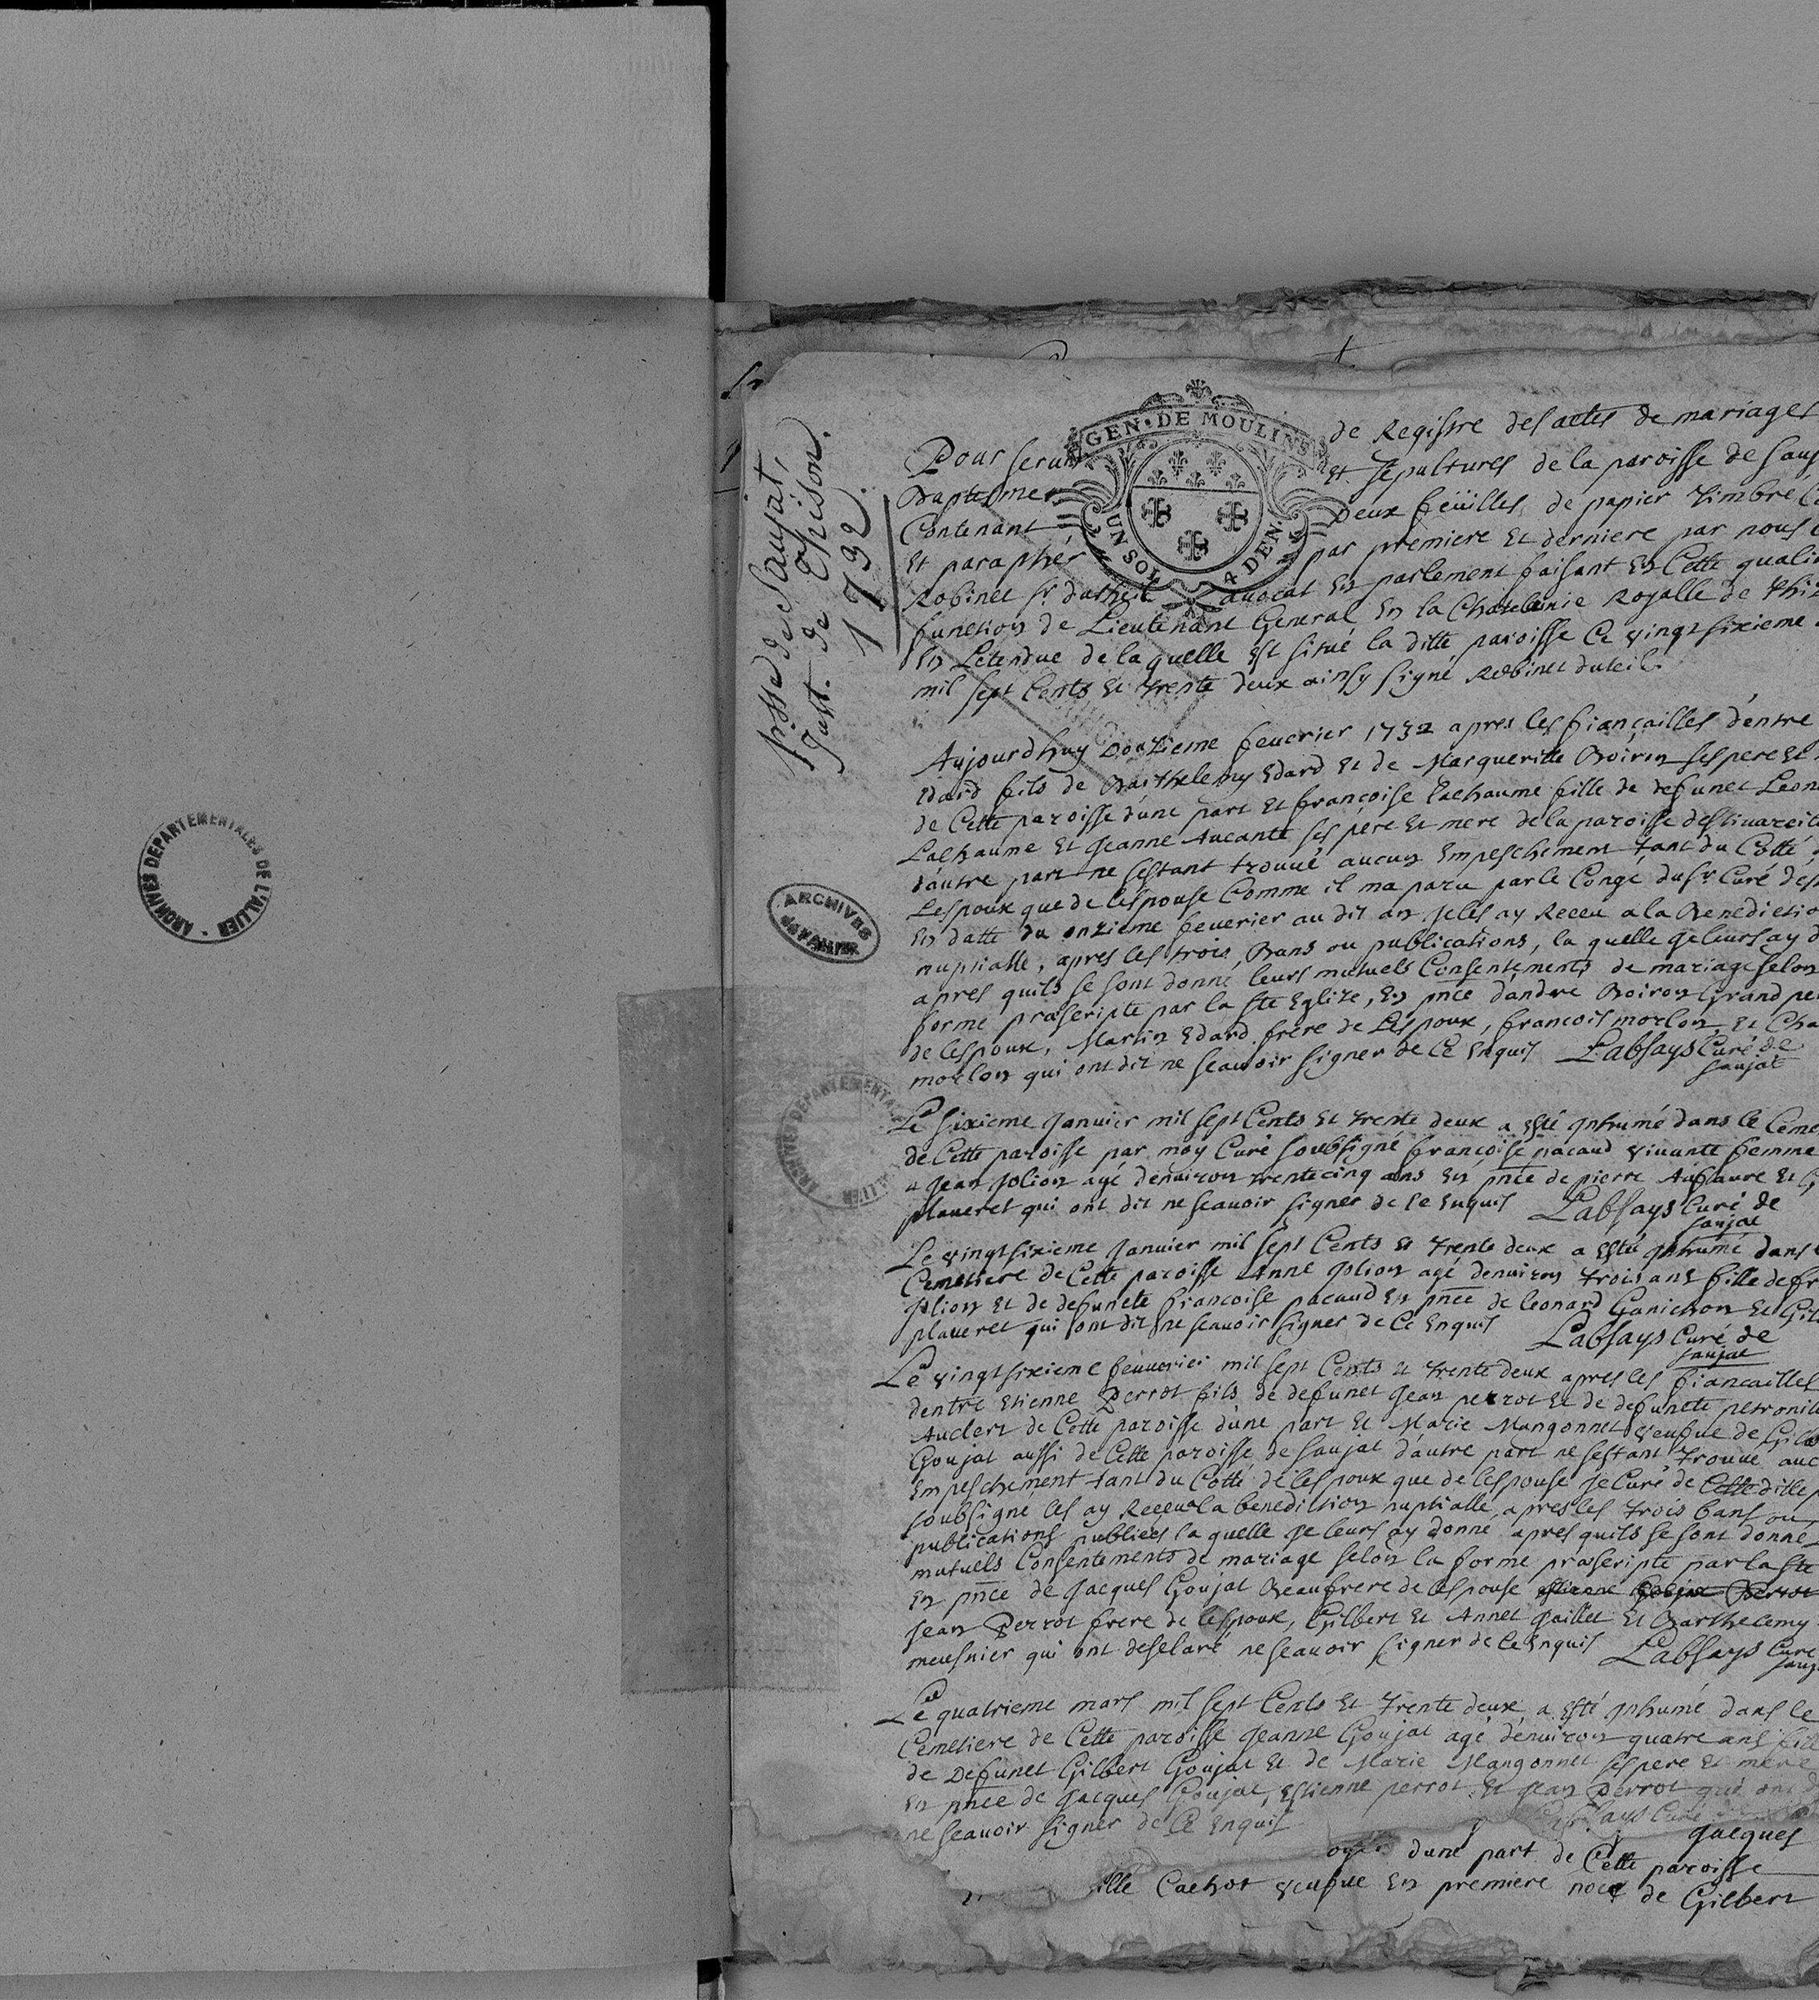 ARCHIVES DEPARTEMENTALES DE L'ALLIER
psse de Saujat,
Just. de Thison.
1732.
GEN. DE MOULINS
UN SOL 4 DEN.
ARCHIVES
de l'ALLIER
ARCHIVES DEPARTEMENTALES
DE L'ALLIER
Pour seruir de Registre des actes de mariages
Baptesmes Et Sepultures de la paroisse de Sauj
Contenant Deux feüilles de papier timbre
Et paraphés par premiere Et derniere par nous
Robinet Sr. dutheil auocat En parlement faisant En Cette qualit
function de Lieutenant General En la Chatelenie Royalle de Thiz
En Letendue de la quelle Est situé la ditte paroisse Ce vingt sixieme
mil sept Cents Et trente deux ainsy signé Robinet duteil.
Aujourdhuy Douzieme feuerier 1732 apres les fiançailles d'entre
Edard fils de Barthelemy Edard Et de Marguerite Boiron ses pere Et
de Cette paroisse d'une part Et françoise Lachaume fille de defunct Leon
Lachaume Et Jeanne Aucante ses pere Et mere de la paroisse
d'autre part ne sestant trouué aucun Empeschement tant du Cotté
Lespoux que de lespouse Comme il ma paru par le Congé du sr Curé
En datte du onzieme feuerier au dit an je les ay Receu a la Benedictio
nuptialle, apres les trois Bans ou publications, la quelle je leurs ay
apres quils se sont donné leurs mutuels Consentements de mariage selon
forme præscripte par la ste Eglize, En pnce dandre Boiron Grand pe
de lespoux, Martin Edard frere de Lespoux, francois morlon Et Cha
morlon qui ont dit ne scauoir signer de Ce Enquis Labsays Curé de
saujat
Le sixieme Januier mil sept Cents Et trente deux a Esté Inhumé dans le Ceme
de Cette paroisse par moy Curé soubsigné françoise pacaud viuante femme
a Jean Jolion agé denuiron trente cinq ans En pnce de pierre Aufaure Et
plaueret qui ont dit ne scauoir signer de Ce Enquis Labsays Curé de
saujat
Le vingt sixieme Januier mil sept Cents Et trente deux a Esté Inhumé dans
Cemetiere de Cette paroisse Anne Jolion agé denuiron trois ans fille de fr
Jolion Et de defuncte francoise pacaud En pnce de leonard Ganichon Et Gil
plaueret qui ont dit ne scauoir signer de Ce Enquis Labsays Curé de
saujat
Le vingt sixieme feuuerier mil sept Cents Et trente deux apres les fiancailles
dentre Etienne Perrot fils de defunct Jean perrot Et de defuncte petronil
Auclert de Cette paroisse d'une part Et Marie Mangonnet veufue de Gilb
Goujat aussi de Cette paroisse de Saujat d'autre part ne sestant trouué auc
Empeschement tant du Cotté de lespoux que de lespouse Je Curé de Cette ditte p
soubsigné les ay Receu a la benediction nuptialle, apres les trois bans ou
publications publiées la quelle Je leurs ay donné apres quils se sont donné
mutuels Consentements de mariage selon la forme præscripte par la ste
En pnce de Jacques Goujat Beaufrere de lespouse
Jean Perrot frere de lespoux, Gilbert Et Annet Gaillet Et Barthelemy
meusnier qui ont desclaré ne scauoir signer de Ce Enquis Labsays Curé
sauj
Le quatrieme mars mil sept Cents Et trente deux a Esté Inhumé dans le
Cemetiere de Cette paroisse Jeanne Goujat agé denuiron quatre ans fill
de Defunct Gilbert Goujat Et de Marie Mangonnet ses pere Et mere
En pnce de Jacques Goujat, Estienne perrot Et Jean Perrot qui ont
ne scauoir signer de Ce Enquis Labsays Curé
Jacques
dune part de Cette paroisse
ille Cachot veufue En premiere noce de Gilbert